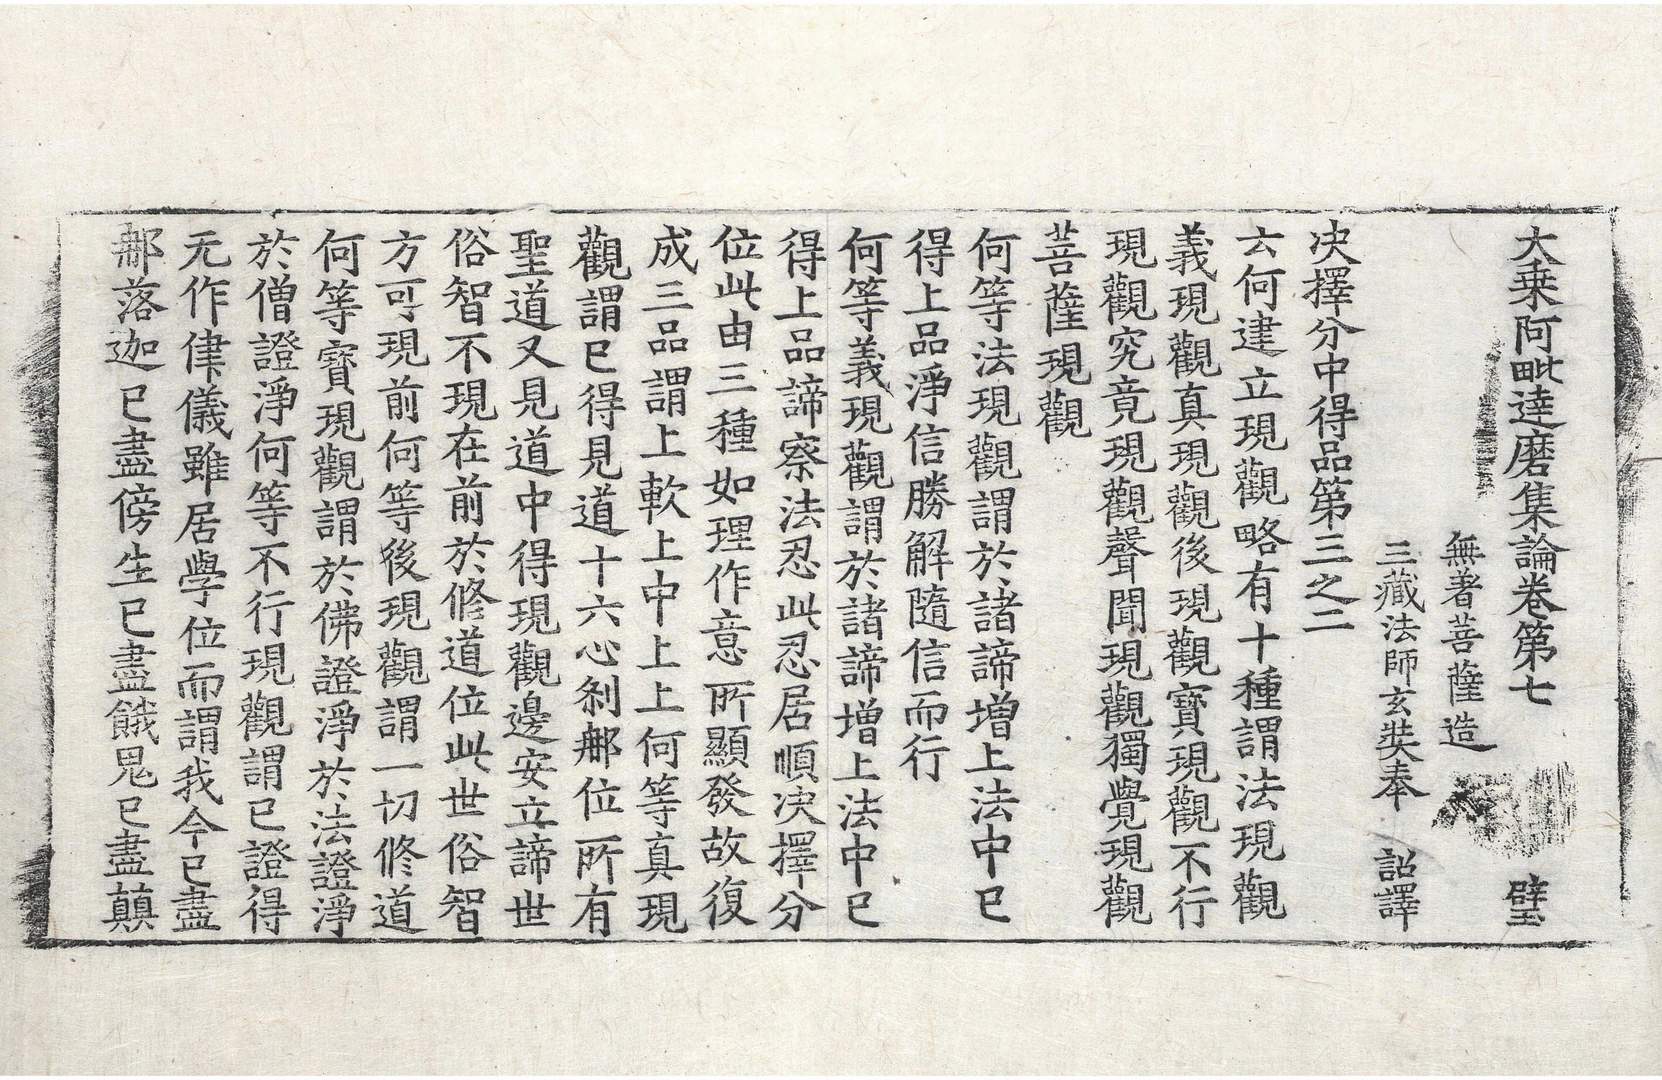 大乗阿毗達磨集論卷第七 璧
無著菩薩造
三藏法師玄奘奉 詔譯
决擇分中得品第三之二
云何建立現觀略有十種謂法現觀
義現觀真現觀後現觀寶現觀不行
現觀究竟現觀聲聞現觀獨覺現觀
菩薩現觀
何等法現觀謂於諸諦增上法中已
得上品淨信勝解隨信而行
何等義現觀謂於諸諦增上法中已
得上品諦察法忍此忍居順决擇分
位此由三種如理作意所顯發故復
成三品謂上軟上中上上何等真現
觀謂已得見道十六心刹那位所有
聖道又見道中得現觀邊安立諦世
俗智不現在前於修道位此世俗智
方可現前何等後現觀謂一切修道
何等寶現觀謂於佛證淨於法證淨
於僧證淨何等不行現觀謂已證得
无作律儀雖居學位而謂我今已盡
那落迦已盡傍生已盡餓鬼已盡顛